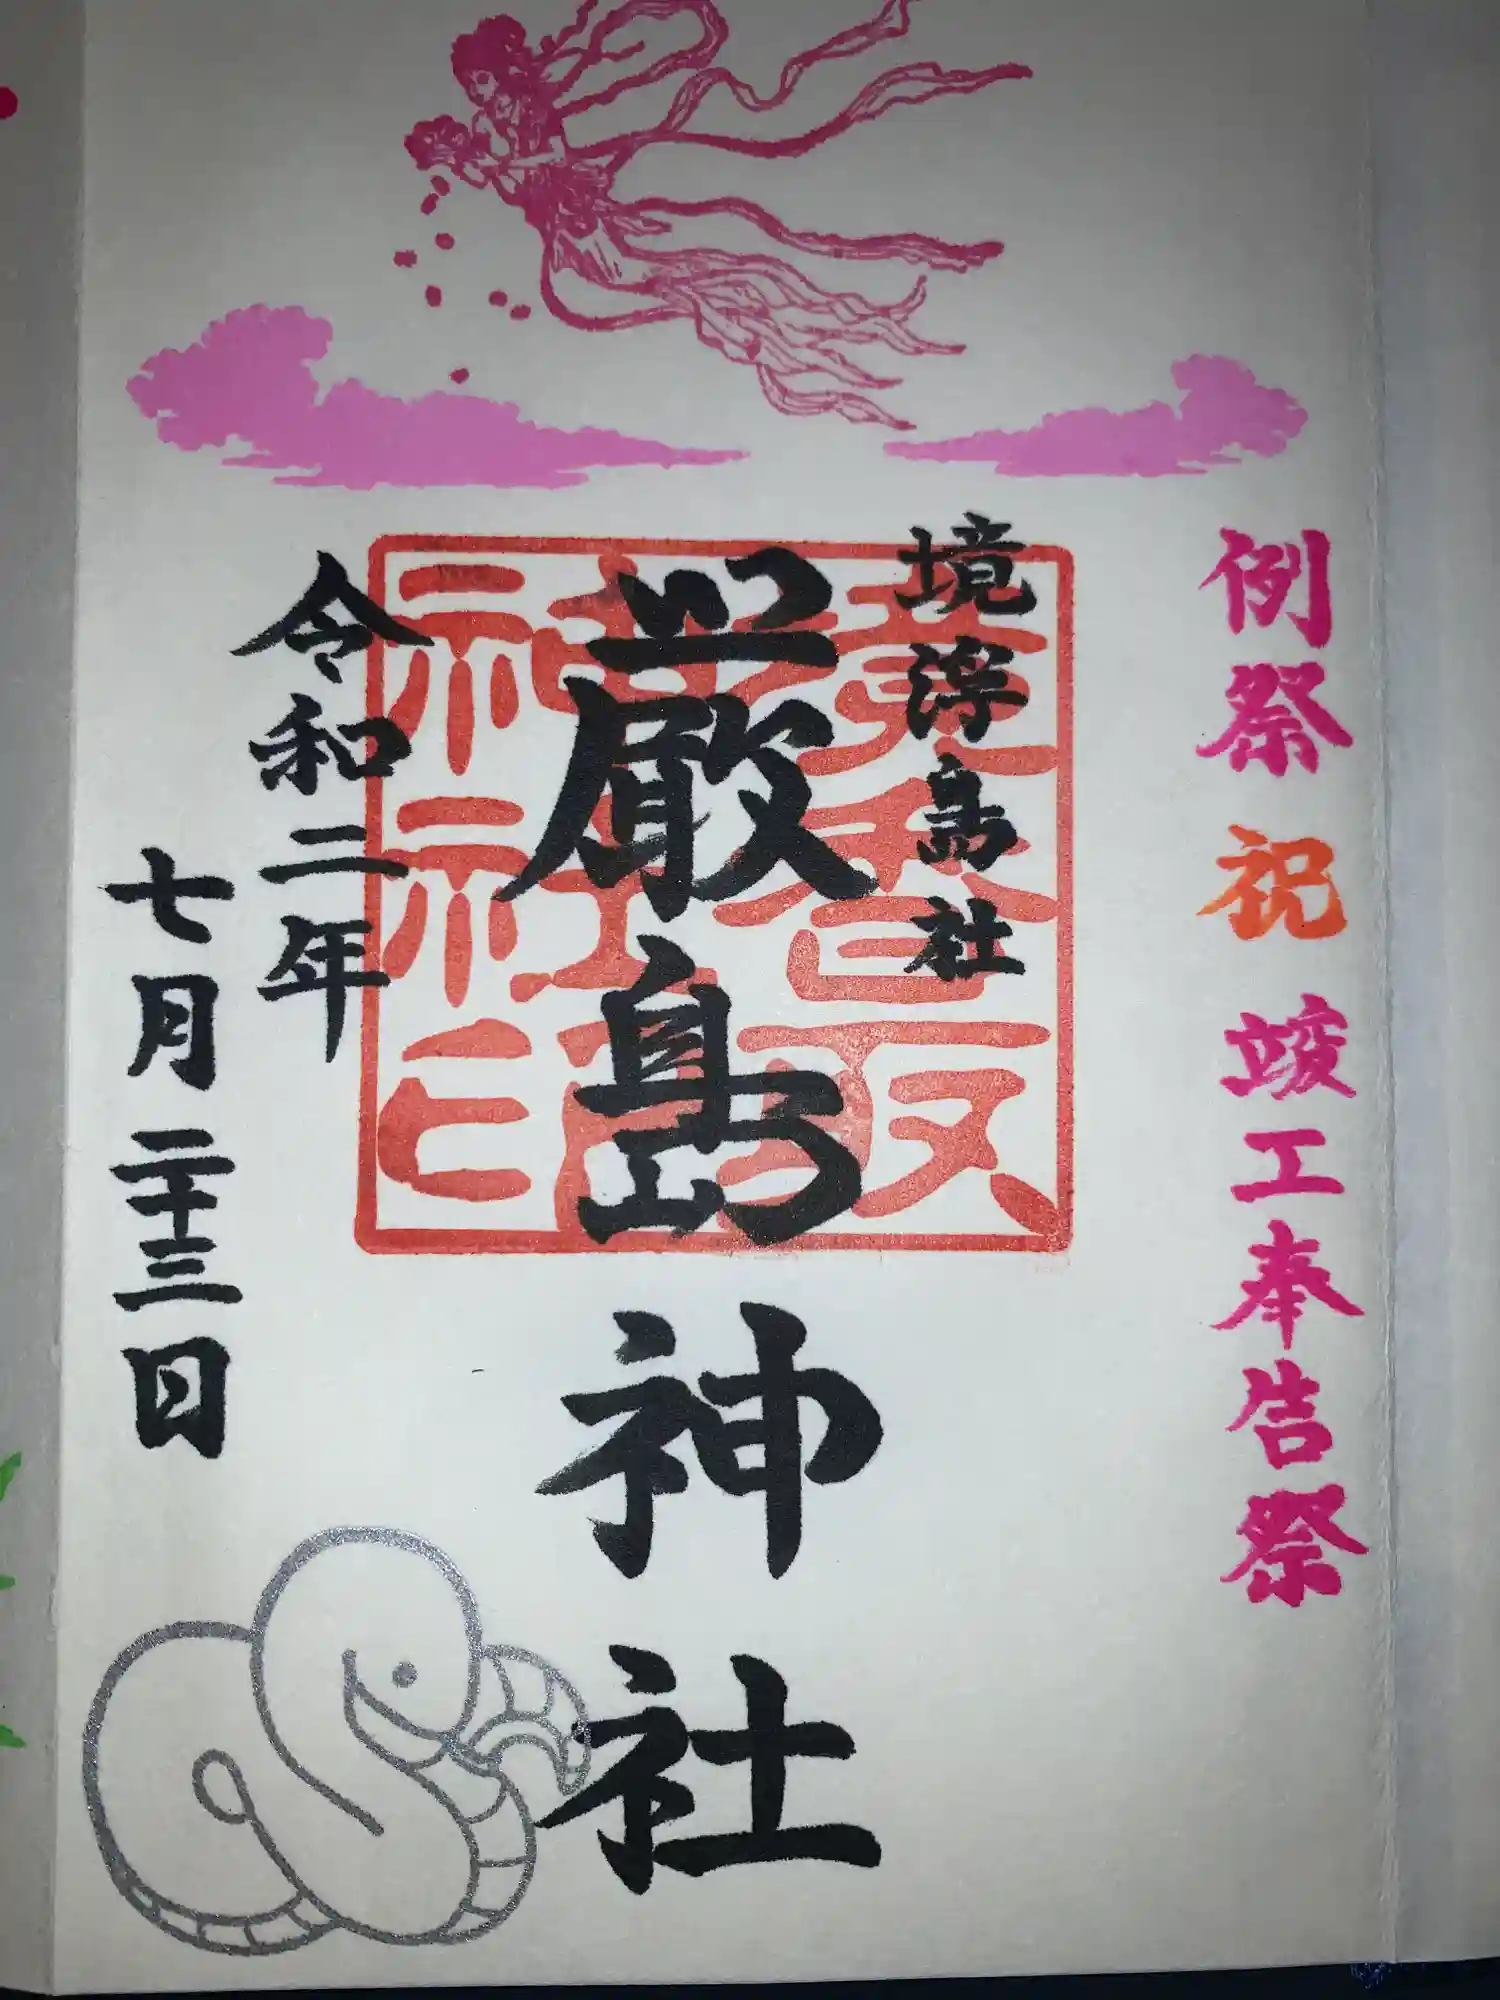 例祭 祝 竣工奉告祭
境浮島社
厳島神社
令和二年
七月二十三日